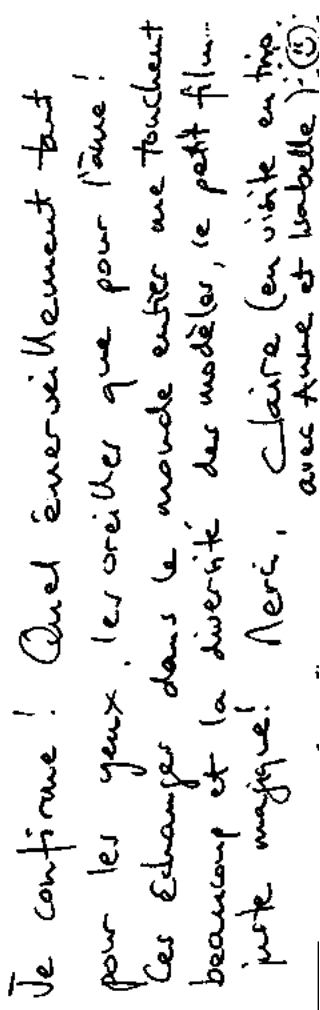 Je confirme ! Quel émerveillement tant
pour les yeux, les oreilles que pour l'âme !
Ces échanges dans le monde entier me touchent
beaucoup et la diversité des modèles, le petit film...
juste magique ! Merci, Claire (en visite en trio
avec Anne et Isabelle) ☺